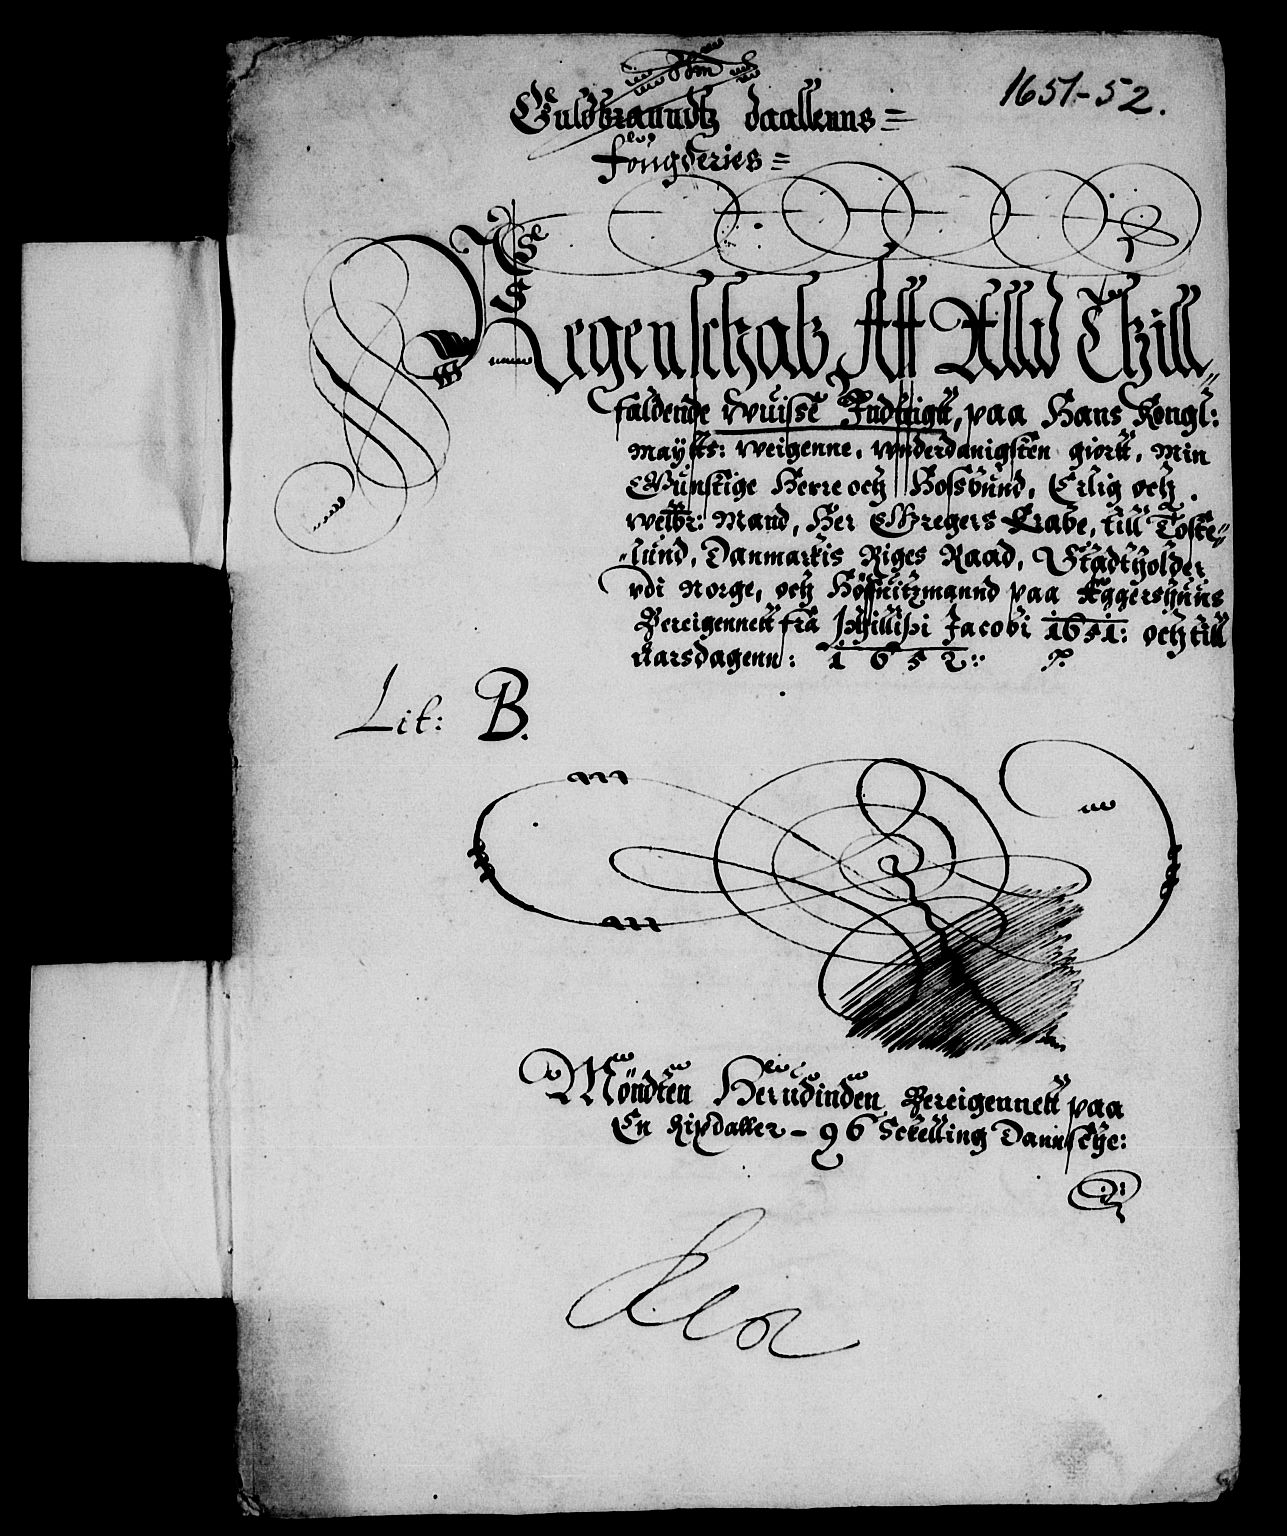 1651-52.
Guldbranndtz daallenns =
fougderies =
Regenschab Aff Alld Thill„
faldende wuisse Indthigtt, paa Hans Kongl:
Maytts: weigenne, wnderdanigsten giortt, Min
Gunstige Herre och Hossbund, Erlig och
welbr: Mand, Her Gregers Krabe, till Toste„
„lund, Danmarkis Riges Raad, Stadtholder
udi Norge, och Höffuitzmannd paa Aggershuus
Bereigennett fra Phillipi Jacobi 1651: och till
Aarsdagenn: 1652:
Lit: B.
Möndten Herudinden Bereigennett paa
En Rixdaller - 96 Schelling Dannskye: